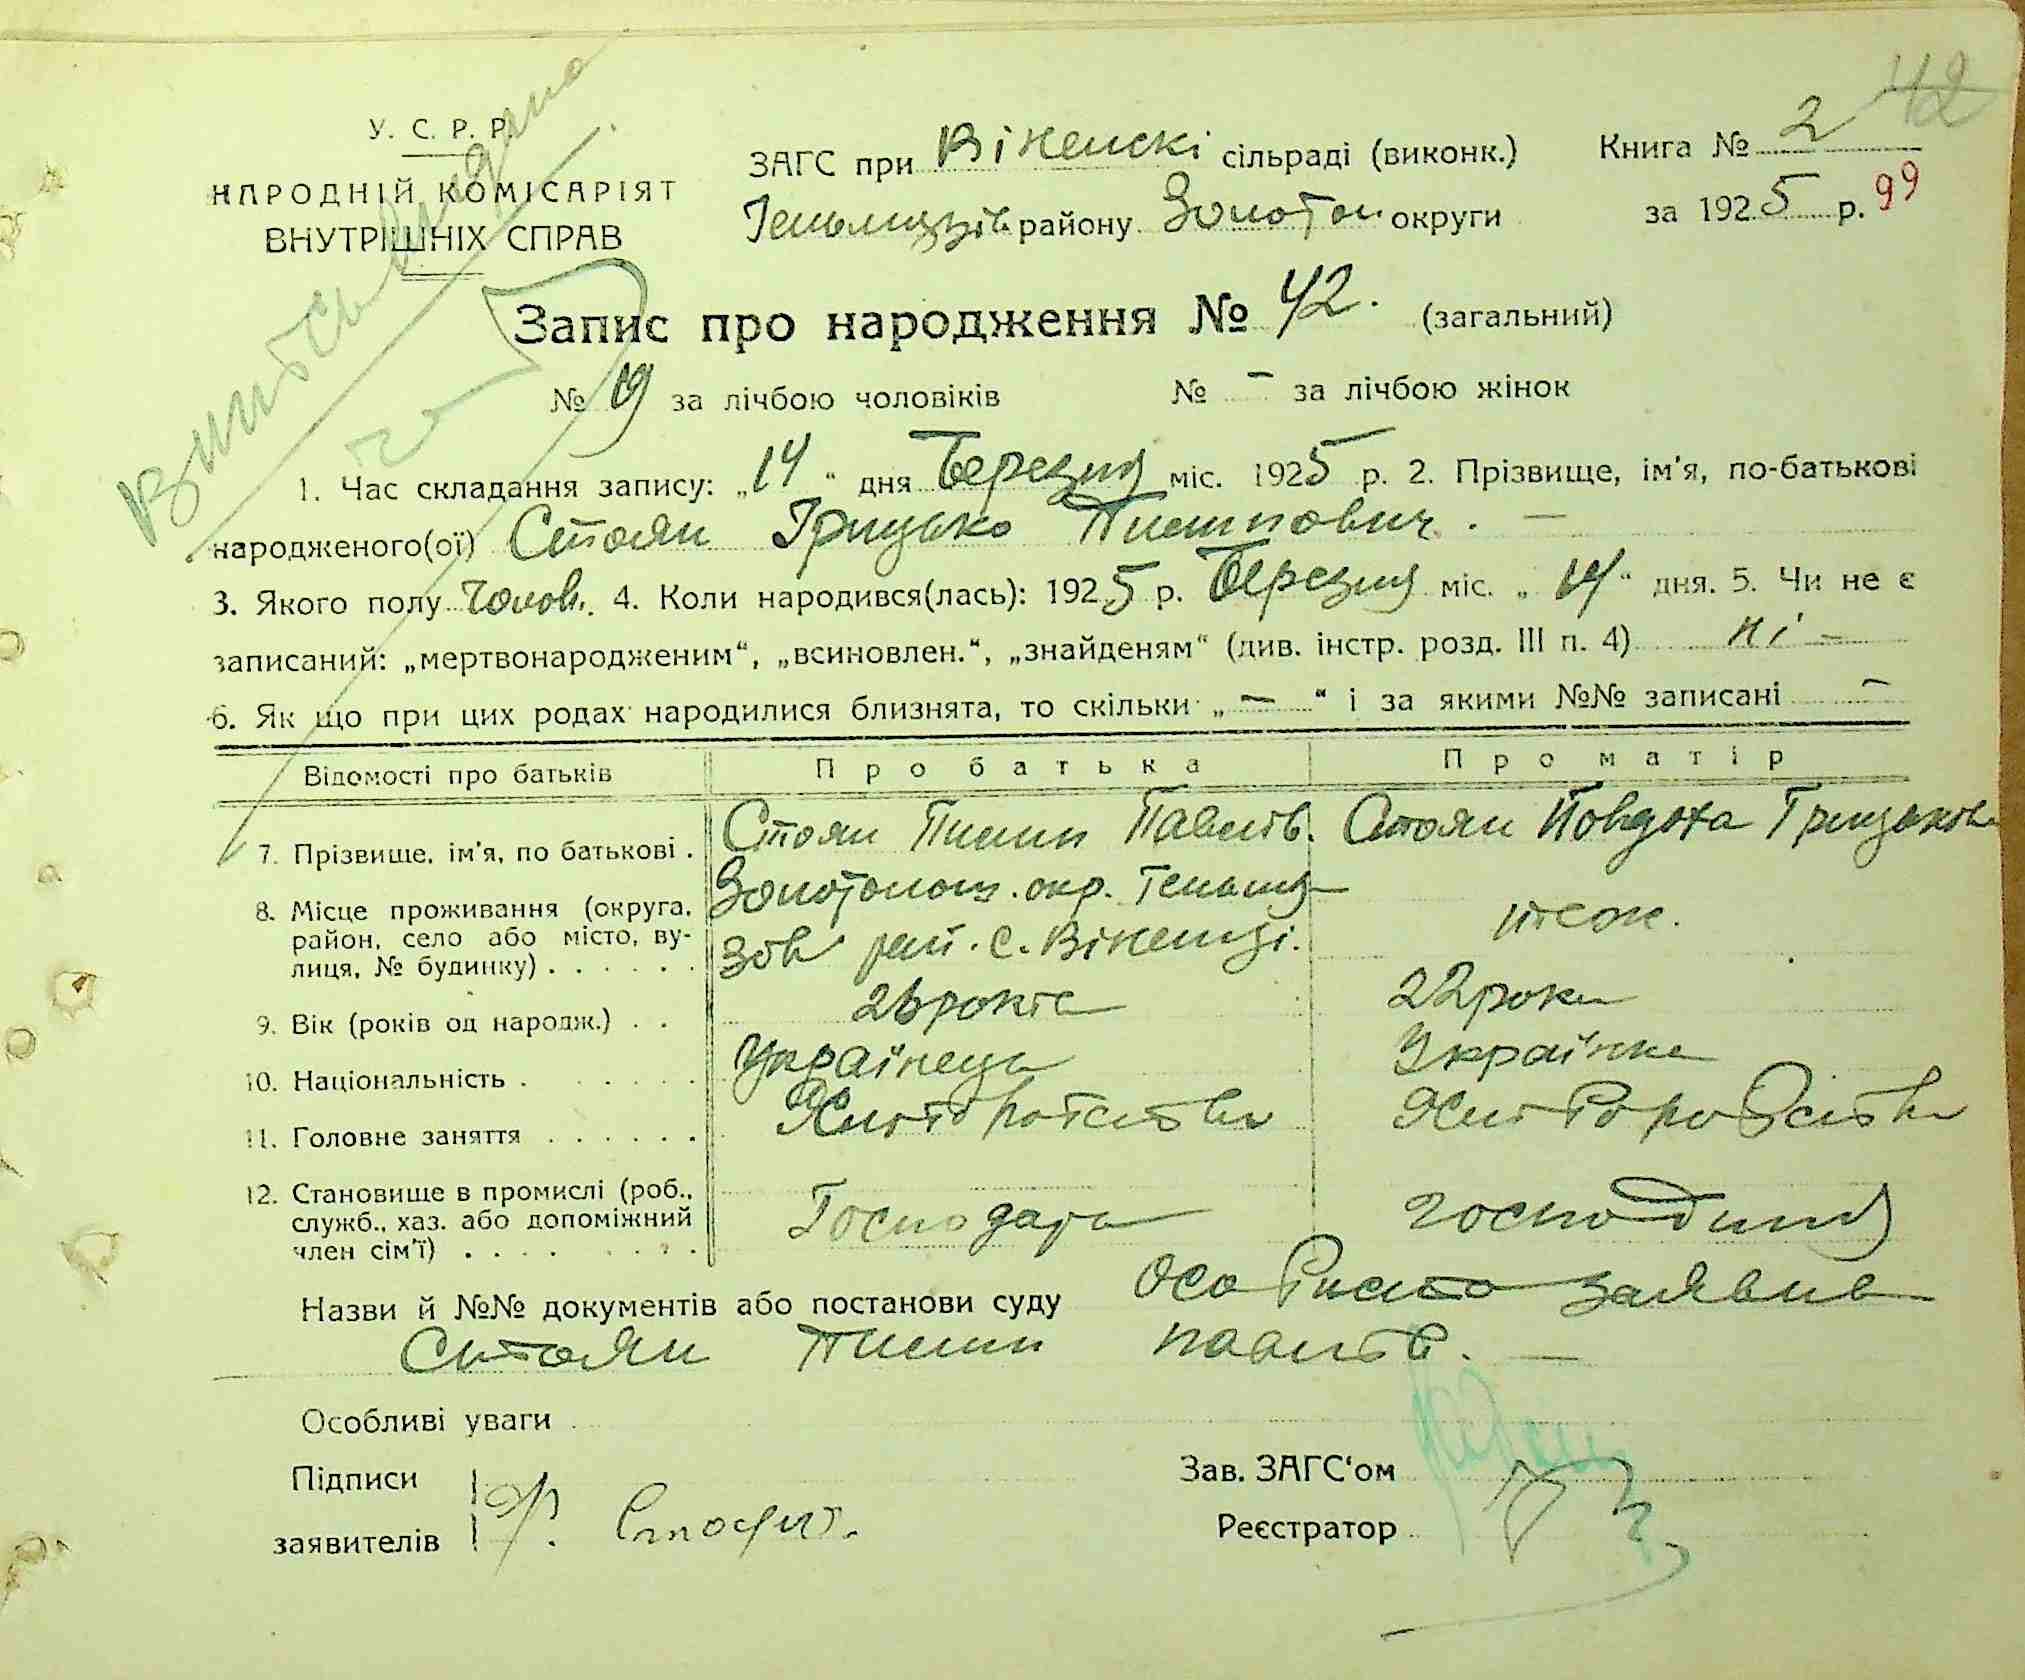 42
У. С. Р. Р.
НАРОДНІЙ КОМІСАРІЯТ
ВНУТРІШНІХ СПРАВ
ЗАГС при Віненскі сільраді (виконк.)
Книга № 2
району Золотон округи
за 1925 р. 99
Запис про народження № 42. (загальний)
№ 19 за лічбою чоловіків № – за лічбою жінок
1. Час складання запису: „14“ дня Березня міс. 1925 р. 2. Прізвище, ім'я, по-батькові
народженого(ої) Стоян Грицько Пилипович. —
3. Якого полу чолов. 4. Коли народився(лась): 1925 р. Березня міс. „14“ дня. 5. Чи не є
записаний: „мертвонародженим“, „всиновлен.“, „знайденям“ (див. інстр. розд. III п. 4) ні –
6. Як що при цих родах народилися близнята, то скільки „ — “ і за якими №№ записані –
Відомості про батьків Про батька Про матір
7. Прізвище, ім'я, по батькові . Стоян Пилип Павлів. Стоян Йовдоха Грицькова
8. Місце проживання (округа, район, село або місто, вулиця, № будинку) . . . . . . Золотонош. окр. Гельмязів рай. с. Віненці. теж.
9. Вік (років од народж.) . . 26 років 22 роки
10. Національність . . . . . . Українець Українка
11. Головне заняття . . . . . . Хліборобство Хліборобство
12. Становище в промислі (роб., служб., хаз. або допоміжний член сім'ї) . . . . Господарь господиня
Назви й №№ документів або постанови суду особисто заявив
Стоян Пилип Павлів. —
Особливі уваги
Підписи
заявителів
Зав. ЗАГС'ом
Реєстратор